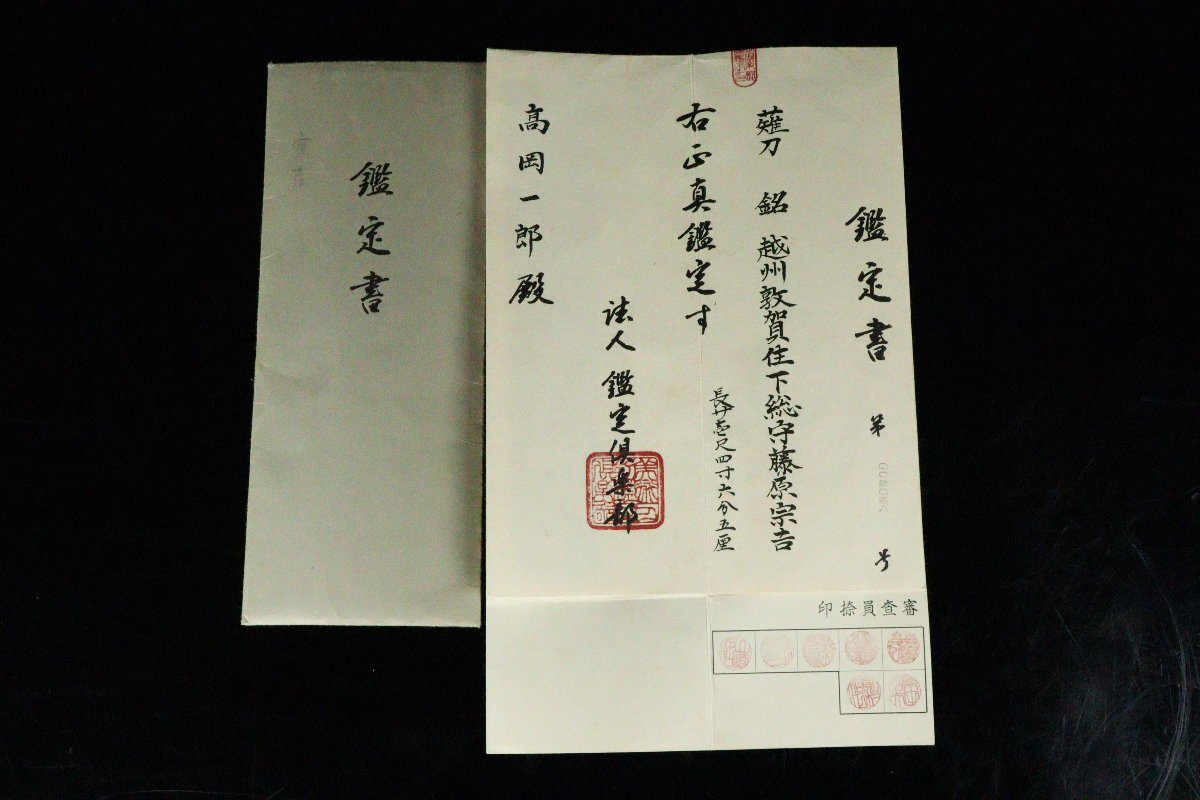 鑑定書 第 号
薙刀 銘 越州敦賀住下総守藤原宗吉
長サ壱尺四寸六分五厘
右正真鑑定す
法人 鑑定倶楽部
高岡一郎殿
審査員捺印
鑑定書
宗吉